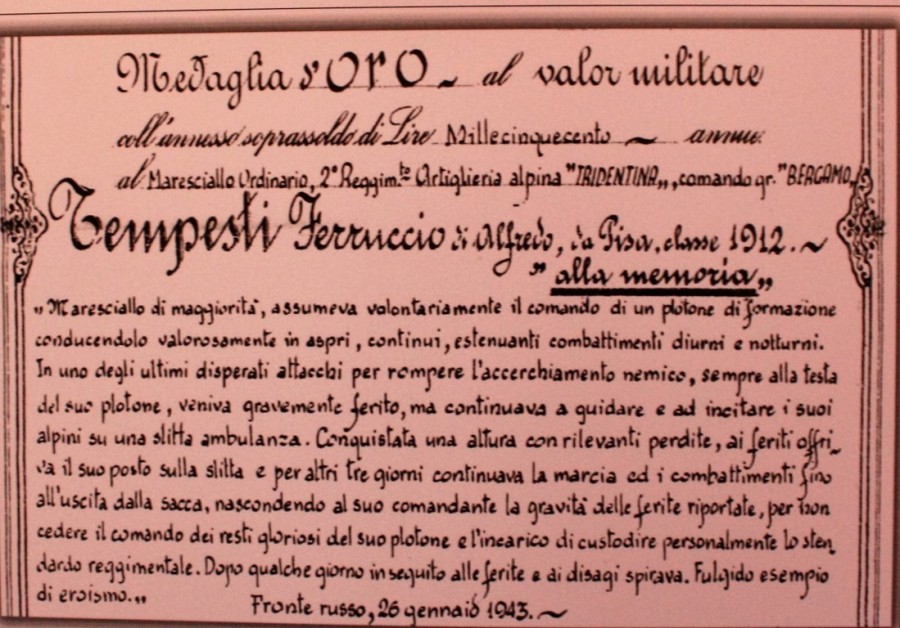 Medaglia d'Oro ~ al valor militare
coll'annesso soprassoldo di Lire Millecinquecento ~ annue
al Maresciallo Ordinario, 2° Reggim.to Artiglieria alpina "TRIDENTINA„, comando gr. "BERGAMO„
Tempesti Ferruccio di Alfredo, da Pisa, classe 1912. ~
" alla memoria „
„ Maresciallo di maggiorità, assumeva volontariamente il comando di un plotone di formazione
conducendolo valorosamente in aspri, continui, estenuanti combattimenti diurni e notturni.
In uno degli ultimi disperati attacchi per rompere l'accerchiamento nemico, sempre alla testa
del suo plotone, veniva gravemente ferito, ma continuava a guidare e ad incitare i suoi
alpini su una slitta ambulanza. Conquistata una altura con rilevanti perdite, ai feriti offri_
va il suo posto sulla slitta e per altri tre giorni continuava la marcia ed i combattimenti fino
all'uscita dalla sacca, nascondendo al suo comandante la gravità delle ferite riportate, per non
cedere il comando dei resti gloriosi del suo plotone e l'incarico di custodire personalmente lo sten_
dardo reggimentale. Dopo qualche giorno in seguito alle ferite e ai disagi spirava. Fulgido esempio
di eroismo.„
Fronte russo, 26 gennaio 1943. ~